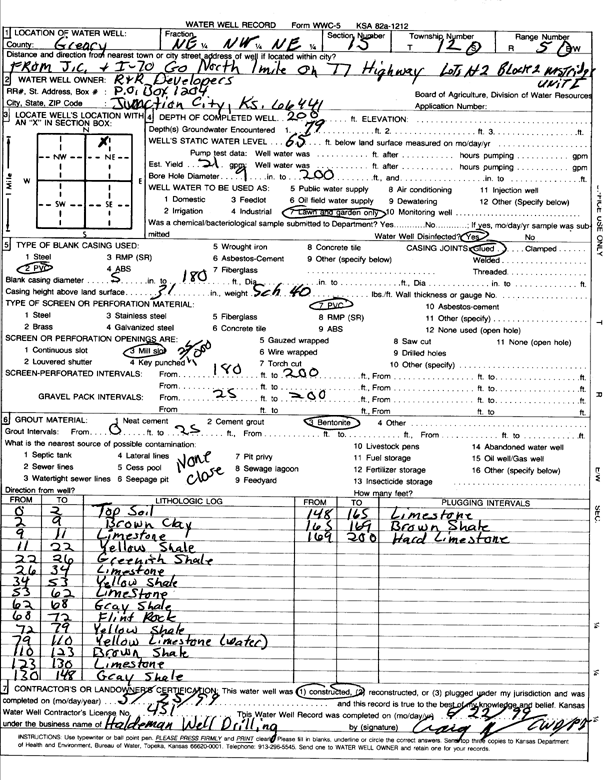 WATER WELL RECORD Form WWC-5 KSA 82a-1212
1 LOCATION OF WATER WELL: Fraction Section Number Township Number Range Number
County: Geary NE ¼ NW ¼ NE ¼ 15 T 12 S R 5 E/W
Distance and direction from nearest town or city street address of well if located within city?
From J.C. + I-70 Go North 1 mile on 77 Highway Lots #2 Block 2 Unit 1
2 WATER WELL OWNER: R+R Developers
RR#, St. Address, Box #: P.O. Box 1204 Board of Agriculture, Division of Water Resources
City, State, ZIP Code: Junction City, Ks. 66441 Application Number:
3 LOCATE WELL'S LOCATION WITH AN "X" IN SECTION BOX:
N
NW NE
W E
SW SE
1 Mile
4 DEPTH OF COMPLETED WELL 200 ft. ELEVATION:
Depth(s) Groundwater Encountered 1. 79 ft. 2. ft. 3. ft.
WELL'S STATIC WATER LEVEL 65 ft. below land surface measured on mo/day/yr
Pump test data: Well water was ft. after hours pumping gpm
Est. Yield 21 gpm: Well water was ft. after hours pumping gpm
Bore Hole Diameter 9 in. to 200 ft., and in. to ft.
WELL WATER TO BE USED AS: 5 Public water supply 8 Air conditioning 11 Injection well
1 Domestic 3 Feedlot 6 Oil field water supply 9 Dewatering 12 Other (Specify below)
2 Irrigation 4 Industrial 7 Lawn and garden only 10 Monitoring well
Was a chemical/bacteriological sample submitted to Department? Yes No ; If yes, mo/day/yr sample was submitted Water Well Disinfected? Yes No
5 TYPE OF BLANK CASING USED: 5 Wrought iron 8 Concrete tile CASING JOINTS: Glued Clamped
1 Steel 3 RMP (SR) 6 Asbestos-Cement 9 Other (specify below) Welded
2 PVC 4 ABS 7 Fiberglass Threaded
Blank casing diameter 5 in. to 180 ft., Dia in. to ft., Dia in. to ft.
Casing height above land surface 31 in., weight Sch. 40 lbs./ft. Wall thickness or gauge No.
TYPE OF SCREEN OR PERFORATION MATERIAL: 7 PVC 10 Asbestos-cement
1 Steel 3 Stainless steel 5 Fiberglass 8 RMP (SR) 11 Other (specify)
2 Brass 4 Galvanized steel 6 Concrete tile 9 ABS 12 None used (open hole)
SCREEN OR PERFORATION OPENINGS ARE: 5 Gauzed wrapped 8 Saw cut 11 None (open hole)
1 Continuous slot 3 Mill slot 6 Wire wrapped 9 Drilled holes
2 Louvered shutter 4 Key punched 7 Torch cut 10 Other (specify)
SCREEN-PERFORATED INTERVALS: From 180 ft. to 200 ft., From ft. to ft.
From ft. to ft., From ft. to ft.
GRAVEL PACK INTERVALS: From 25 ft. to 200 ft., From ft. to ft.
From ft. to ft., From ft. to ft.
6 GROUT MATERIAL: 1 Neat cement 2 Cement grout 3 Bentonite 4 Other
Grout Intervals: From 0 ft. to 25 ft., From ft. to ft., From ft. to ft.
What is the nearest source of possible contamination: 10 Livestock pens 14 Abandoned water well
1 Septic tank 4 Lateral lines 7 Pit privy 11 Fuel storage 15 Oil well/Gas well
2 Sewer lines 5 Cess pool 8 Sewage lagoon 12 Fertilizer storage 16 Other (specify below)
3 Watertight sewer lines 6 Seepage pit 9 Feedyard 13 Insecticide storage
None Close
Direction from well? How many feet?
FROM TO LITHOLOGIC LOG FROM TO PLUGGING INTERVALS
0 2 Top Soil 148 165 Limestone
2 9 Brown Clay 165 169 Brown Shale
9 11 Limestone 169 200 Hard Limestone
11 22 Yellow Shale
22 26 Greenish Shale
26 34 Limestone
34 53 Yellow Shale
53 62 Limestone
62 68 Gray Shale
68 72 Flint Rock
72 79 Yellow Shale
79 110 Yellow Limestone (water)
110 123 Brown Shale
123 130 Limestone
130 148 Gray Shale
7 CONTRACTOR'S OR LANDOWNER'S CERTIFICATION: This water well was (1) constructed, (2) reconstructed, or (3) plugged under my jurisdiction and was
completed on (mo/day/year) and this record is true to the best of my knowledge and belief. Kansas
Water Well Contractor's License No. 431 This Water Well Record was completed on (mo/day/yr)
under the business name of Haldeman Well Drilling by (signature)
INSTRUCTIONS: Use typewriter or ball point pen. PLEASE PRESS FIRMLY and PRINT clearly. Please fill in blanks, underline or circle the correct answers. Send top three copies to Kansas Department
of Health and Environment, Bureau of Water, Topeka, Kansas 66620-0001. Telephone: 913-296-5545. Send one to WATER WELL OWNER and retain one for your records.
OFFICE USE ONLY
T
R
E/W
SEC.
¼
¼
¼